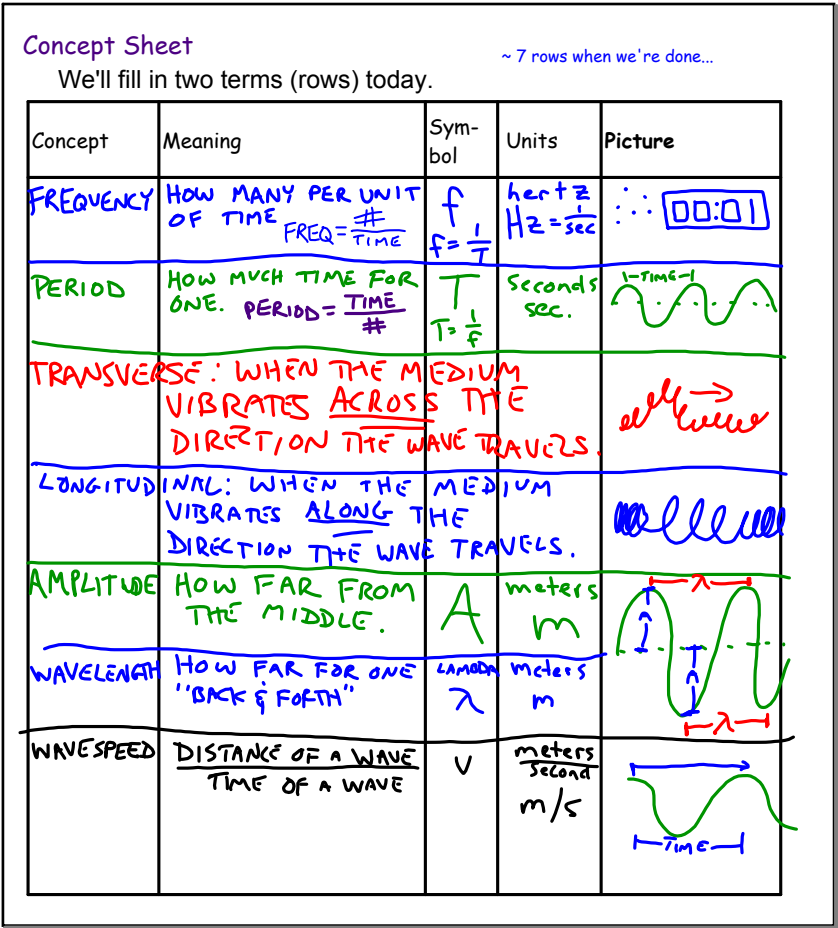 Concept Sheet
~ 7 rows when we're done...
We'll fill in two terms (rows) today.
Concept
Meaning
Sym-
bol
Units
Picture
FREQUENCY
HOW MANY PER UNIT
OF TIME
FREQ = #/TIME
f
f = 1/T
hertz
Hz = 1/sec
00:01
PERIOD
HOW MUCH TIME FOR
ONE. PERIOD = TIME/#
T
T = 1/f
Seconds
sec.
|-TIME-|
TRANSVERSE: WHEN THE MEDIUM
VIBRATES ACROSS THE
DIRECTION THE WAVE TRAVELS.
LONGITUDINAL: WHEN THE MEDIUM
VIBRATES ALONG THE
DIRECTION THE WAVE TRAVELS.
AMPLITUDE
HOW FAR FROM
THE MIDDLE.
A
meters
m
λ
A
A
λ
WAVELENGTH
HOW FAR FOR ONE
"BACK & FORTH"
LAMBDA
λ
meters
m
WAVESPEED
DISTANCE OF A WAVE
TIME OF A WAVE
v
meters
second
m/s
TIME